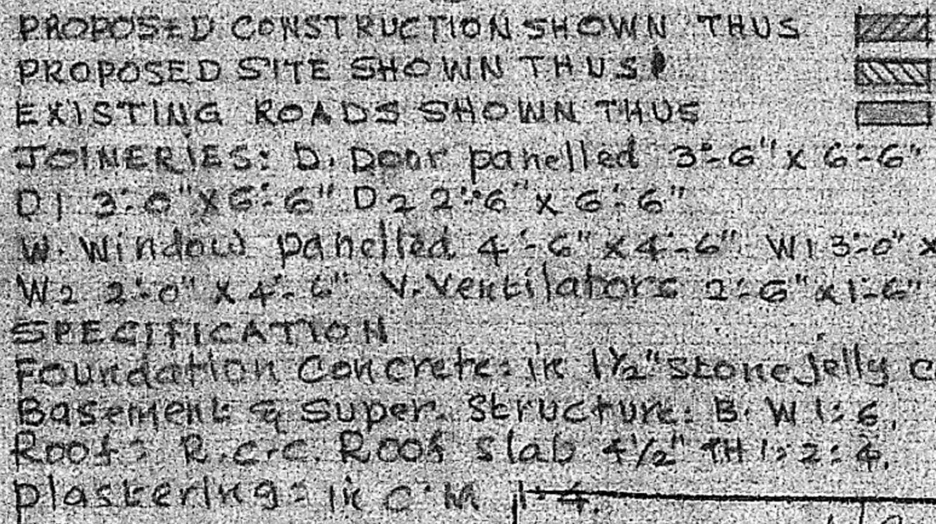 PROPOSED CONSTRUCTION SHOWN THUS
PROPOSED SITE SHOWN THUS
EXISTING ROADS SHOWN THUS
JOINERIES: D. Door panelled 3'-6" x 6'-6"
D1 3'-0" x 6'-6" D2 2'-6" x 6'-6"
W. Window panelled 4'-6" x 4'-6" W1 3'-0" x
W2 2'-0" x 4'-6" V. Ventilators 2'-6" x 1'-6"
SPECIFICATION
Foundation Concrete: in 1½" Stone jelly
Basement & Super Structure: B.W 1:6.
Roof: R.C.C. Roof slab 4½" TH 1:2:4.
Plastering: in C.M 1:4.